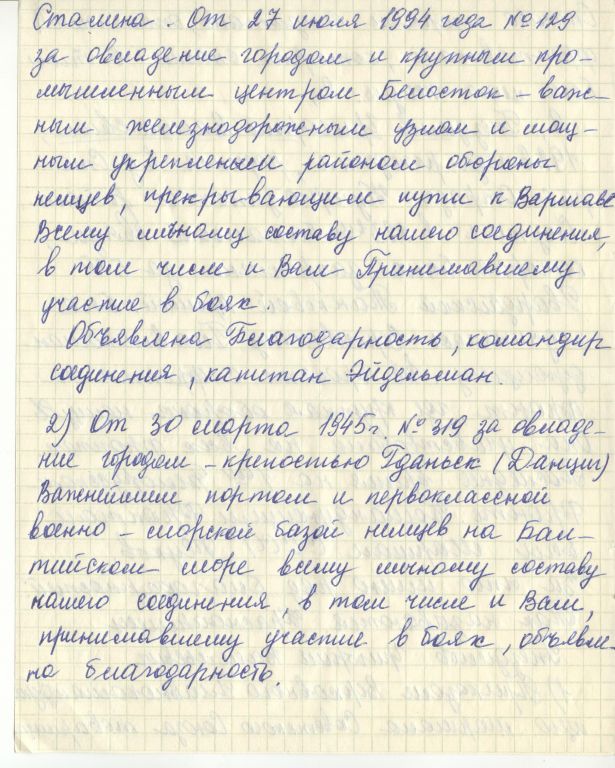 Сталина. От 27 июля 1994 года № 129
за овладение городом и крупным про-
мышленным центром Белосток – важ-
ным железнодорожным узлом и мощ-
ным укрепленым районом обороны
немцев, прекрывающим пути к Варшаве
Всему личному составу нашего соединения,
в том числе и Вам Принимавшему
участие в боях.
Объявлена Благодарность, командир
соединения, капитан Эйдельман.
2) От 30 марта 1945г. № 319 за овладе-
ние городом – крепостью Гданьск (Данциг)
Важнейшим портом и первоклассной
военно – морской базой немцев на Бал-
тийском море всему личному составу
нашего соединения, в том числе и Вам,
принимавшему участие в боях, объявле-
на благодарность.